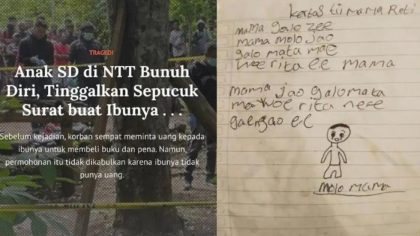 TRAGEDI
Anak SD di NTT Bunuh
Diri, Tinggalkan Sepucuk
Surat buat Ibunya . . .
Sebelum kejadian, korban sempat meminta uang kepada
ibunya untuk membeli buku dan pena. Namun,
permohonan itu tidak dikabulkan karena ibunya tidak
punya uang.
kertas tii mama Reti
mama galo zee
mama molo Jao
galo mata mae
woe rita ee mama
mama Jao galo mata
mae woe rita nee
gaengao ee
molo mama